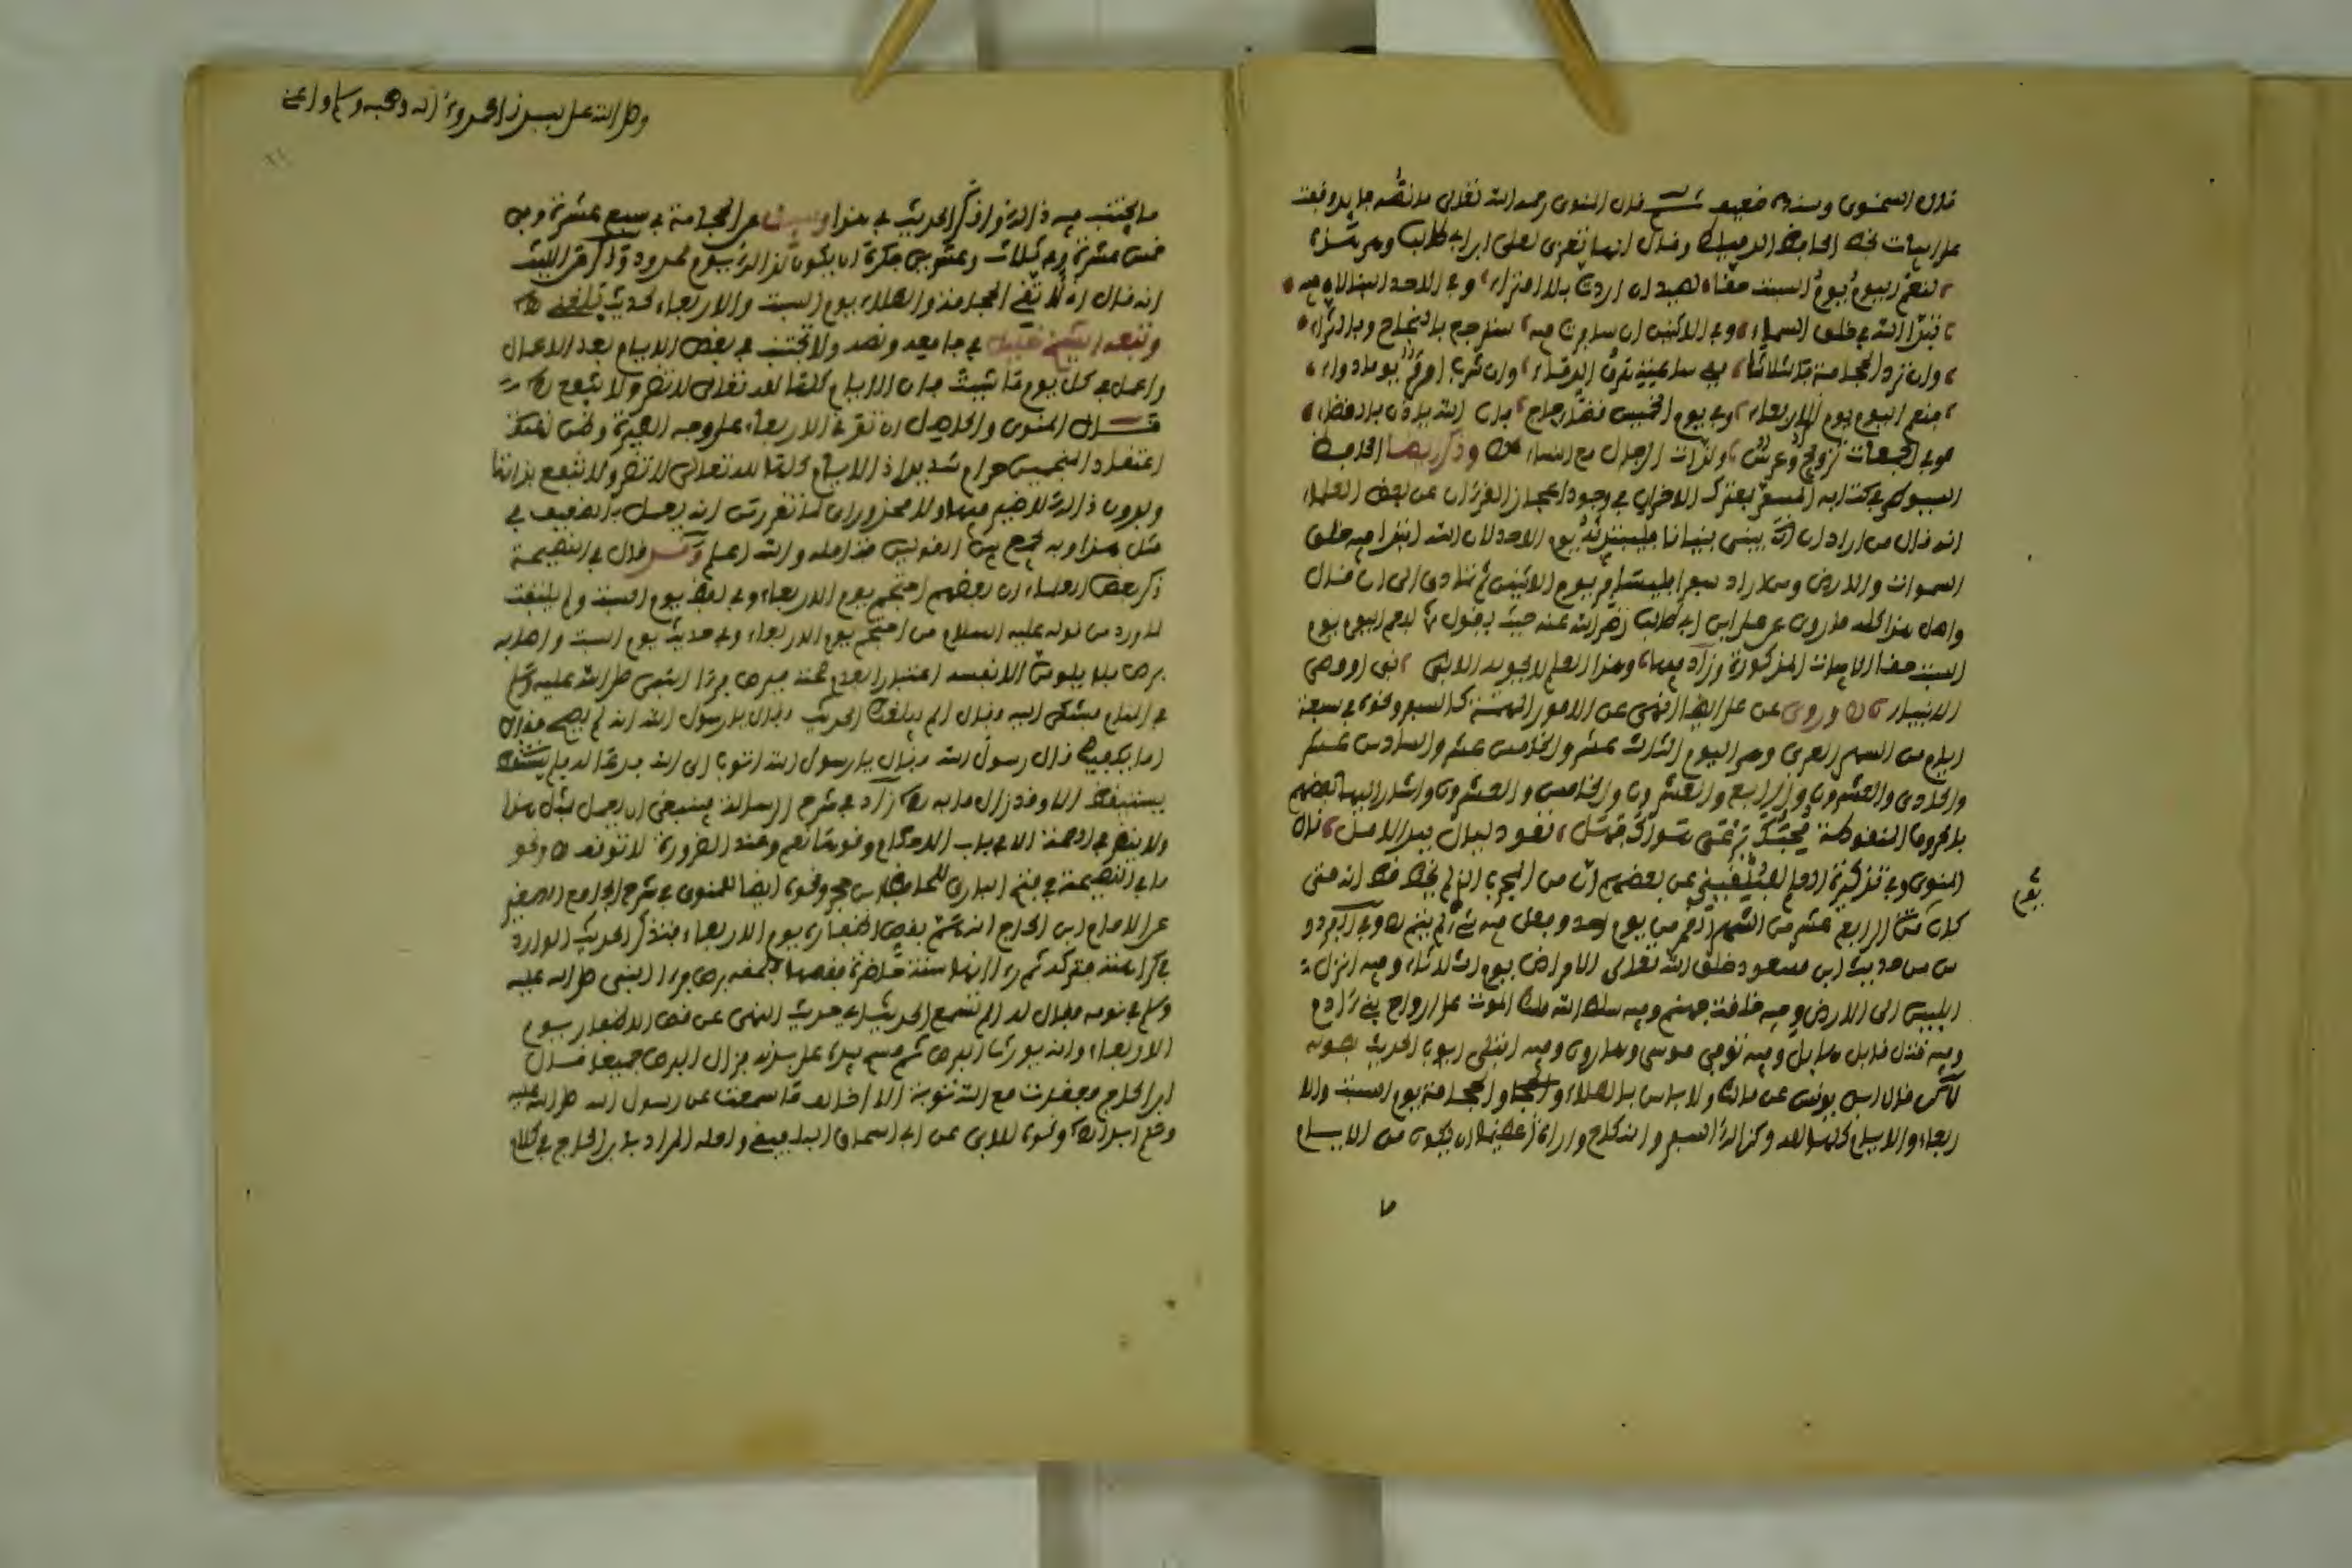 قال السخوى وسنده ضعيف قال المنوى رحمه الله تعالى ما نصه وقفت
على ابيات بخط الحافظ الدمياطي وقال انها تعزى لعلي ابن ابي طالب وهي هذه
لنعم اليوم يوم السبت حقا لصيد ان اردت بلا امتراء وفي الاحد البنا لان فيه
تبدا الله في خلق السماء وفي الاثنين ان سافرت فيه سترجع بالنجاح وبالثراء
وان ترد الحجامة في الثلاثا ففي ساعته هرق الدماء وان شرب امرؤ يوما دواء
فنعم اليوم يوم الاربعاء وفي يوم الخميس قضاء حاج فان الله ياذن بالقضاء
وفي الجمعات تزويج وعرس ولذات الرجال مع النساء وذكر ايضا الحافظ
السيوطي في كتابه المسمى بمعترك الاقران في وجود اعجاز القرءان عن بعض العلماء
انه قال من اراد ان يبني بنيانا فليبتدئه يوم الاحد لان الله ابتدا فيه خلق
السموات والارض ومن اراد سفرا فليسافر يوم الاثنين ثم تمادى الى ان قال
واصل هذا كله ما روي عن علي ابن ابي طالب رضي الله عنه حيث يقول لنعم اليوم يوم
السبت حقا الابيات المذكورة وزاد فيها وهذا العلم لا يحويه الا نبي او وصي
الانبياء وروى عن علي ايضا النهي عن الامور المهمة كالسفر ونحوه في سبعة
ايام من الشهر العربي وهو اليوم الثالث عشر والخامس عشر والسادس عشر
والحادي والعشرون والرابع والعشرون والخامس والعشرون واشار اليها بعضهم
بالحروف المنقوطة
المنوى وفي تذكرة العلم البلقيني عن بعضهم ان من المجرب الذي لم يخط قط انه متى
كان الرابع عشر من الشهر من يوم احد وفعل فيه شيء لم يتم
يوم
من حديث ابن مسعود خلق الله تعالى الامراض يوم الثلاثاء وفيه انزل
ابليس الى الارض وفيه خلقت جهنم وفيه سلط الله ملك الموت على ارواح بني ءادم
وفيه قتل قابيل هابيل وفيه توفي موسى وهارون وفيه ابتلي ايوب الحديث بطوله
لاكن قال ابن يونس عن مالك ولا باس بالطلاء والحجامة يوم السبت والا
ربعاء والايام كلها لله وكذالك السفر والنكاح واراه عظيما ان يكون من الايام
ما
وصلى الله على سيدنا محمد وعلى ءاله وصحبه وسلم
ما يجتنب فيه ذالك وانكر الحديث في هذا عن الحجامة في سبع عشرة وفي
خمس عشرة وفي ثلاث وعشرين فكره ان يكون لذالك يوم محدود وذكر عن الليث
انه قال لا تقي الحجامة والطلاء يوم السبت والاربعاء لحديث بلغني
وتبعه الشيخ خليل في جامعه ونصه ولا تجتنب في بعض الايام بعد الاعمال
واعمل في كل يوم ما شيت فان الايام كلها لله تعالى لا تضر ولا تنفع
قال المنوى والحاصل ان توقي الاربعاء على وجه الطيرة وظن
اعتقاد المنجمين حرام شديد اذ الايام كلها لله تعالى لا تضر ولا تنفع بذاتها
وبدون ذالك لا ضير فيها ولا محذور لما تقرر من انه يعمل بالضعيف في
مثل هذا وبه يجمع بين القولين فتامله والله اعلم قال في النصيحة
ذكر بعض العلماء ان بعضهم احتجم يوم الاربعاء وفي لفظ يوم السبت ولم يلتفت
لما ورد من قوله عليه السلام من احتجم يوم الاربعاء وفي حديث يوم السبت واصابه
برص فلا يلومن الا نفسه اعتبارا لعدم صحته فبرص فرءا النبي صلى الله عليه وسلم
في المنام فشكى اليه فقال الم يبلغك الحديث فقال يا رسول الله انه لم يصح فقال
اما يكفيك قال رسول الله فقال يا رسول الله اتوب الى الله فدعا له فلم
يستيقظ الا وقد زال ما به زاد في شرح الرسالة فينبغي ان يعمل بمثل هذا
ولا ينظر في الصحة الا في باب الاحكام ونحوها نعم وعند الضرورة لا توقف ونحو
ما في النصيحة في فتح الباري للحافظ بن حجر ونحوه ايضا للمنوى في شرح الجامع الصغير
عن الامام ابن الحاج انه هم بقص اظفاره يوم الاربعاء فتذكر الحديث الوارد
في كراهته فتركه ثم رءا انها سنة حاضرة فقصها فلحقه برص فرءا النبي صلى الله عليه
وسلم في نومه فقال له الم تسمع الحديث اي حديث النهي عن قص الاظفار يوم
الاربعاء وانه يورث البرص ثم مسح بيده على بدنه فزال البرص جميعا قال
ابن الحاج فجددت مع الله توبة الا اخالف ما سمعت عن رسول الله صلى الله عليه
وسلم ابدا ونحوه للابي عن ابي اسحاق ولعله المراد بابن الحاج في كلام